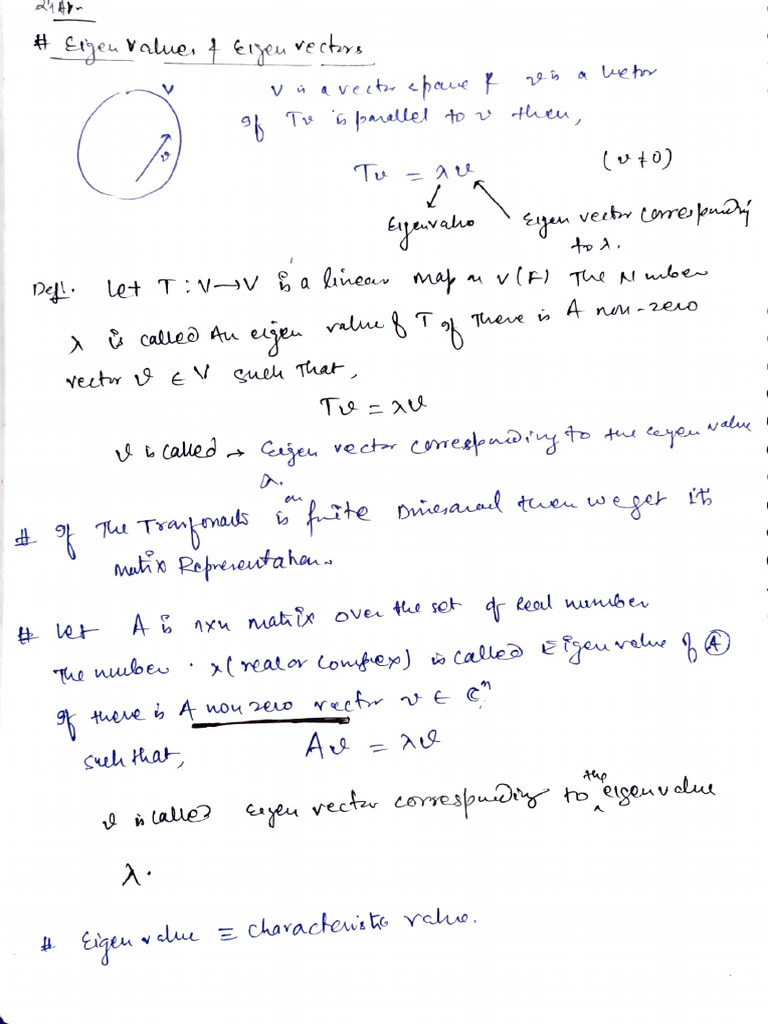 # Eigen Values & Eigen vectors
V
v
V is a vector space & v is a vector
If Tv is parallel to v then,
Tv = λv (v ≠ 0)
Eigenvalue
Eigen vector corresponding
to λ.
Def!. Let T : V → V is a linear map on V(F) The Number
λ is called An eigen value of T if There is A non-zero
vector v ∈ V such That,
Tv = λv
v is called → Eigen vector corresponding to the eigen value
λ.
# If The is on finite then we get its
matrix Representation.
# Let A is n×n matrix over the set of Real number
The number λ (real or complex) is called Eigen value of A
If there is A non zero vector v ∈ ℂⁿ
such that, Av = λv
v is called Eigen vector corresponding to the eigenvalue
λ.
# Eigen value ≡ characteristic value.